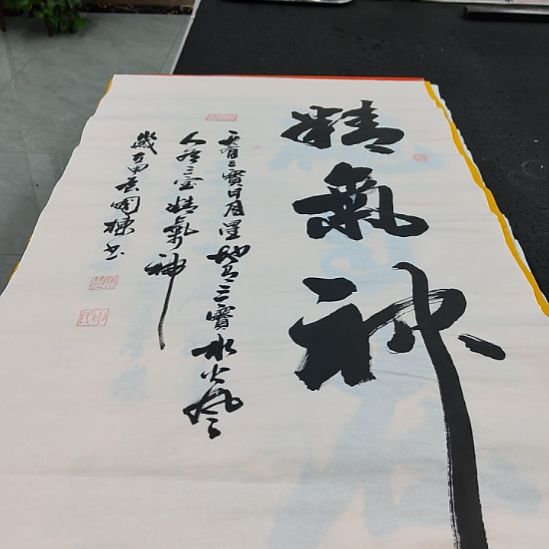 精氣神
天有三寶日月星地有三寶水火風
人有三宝精氣神